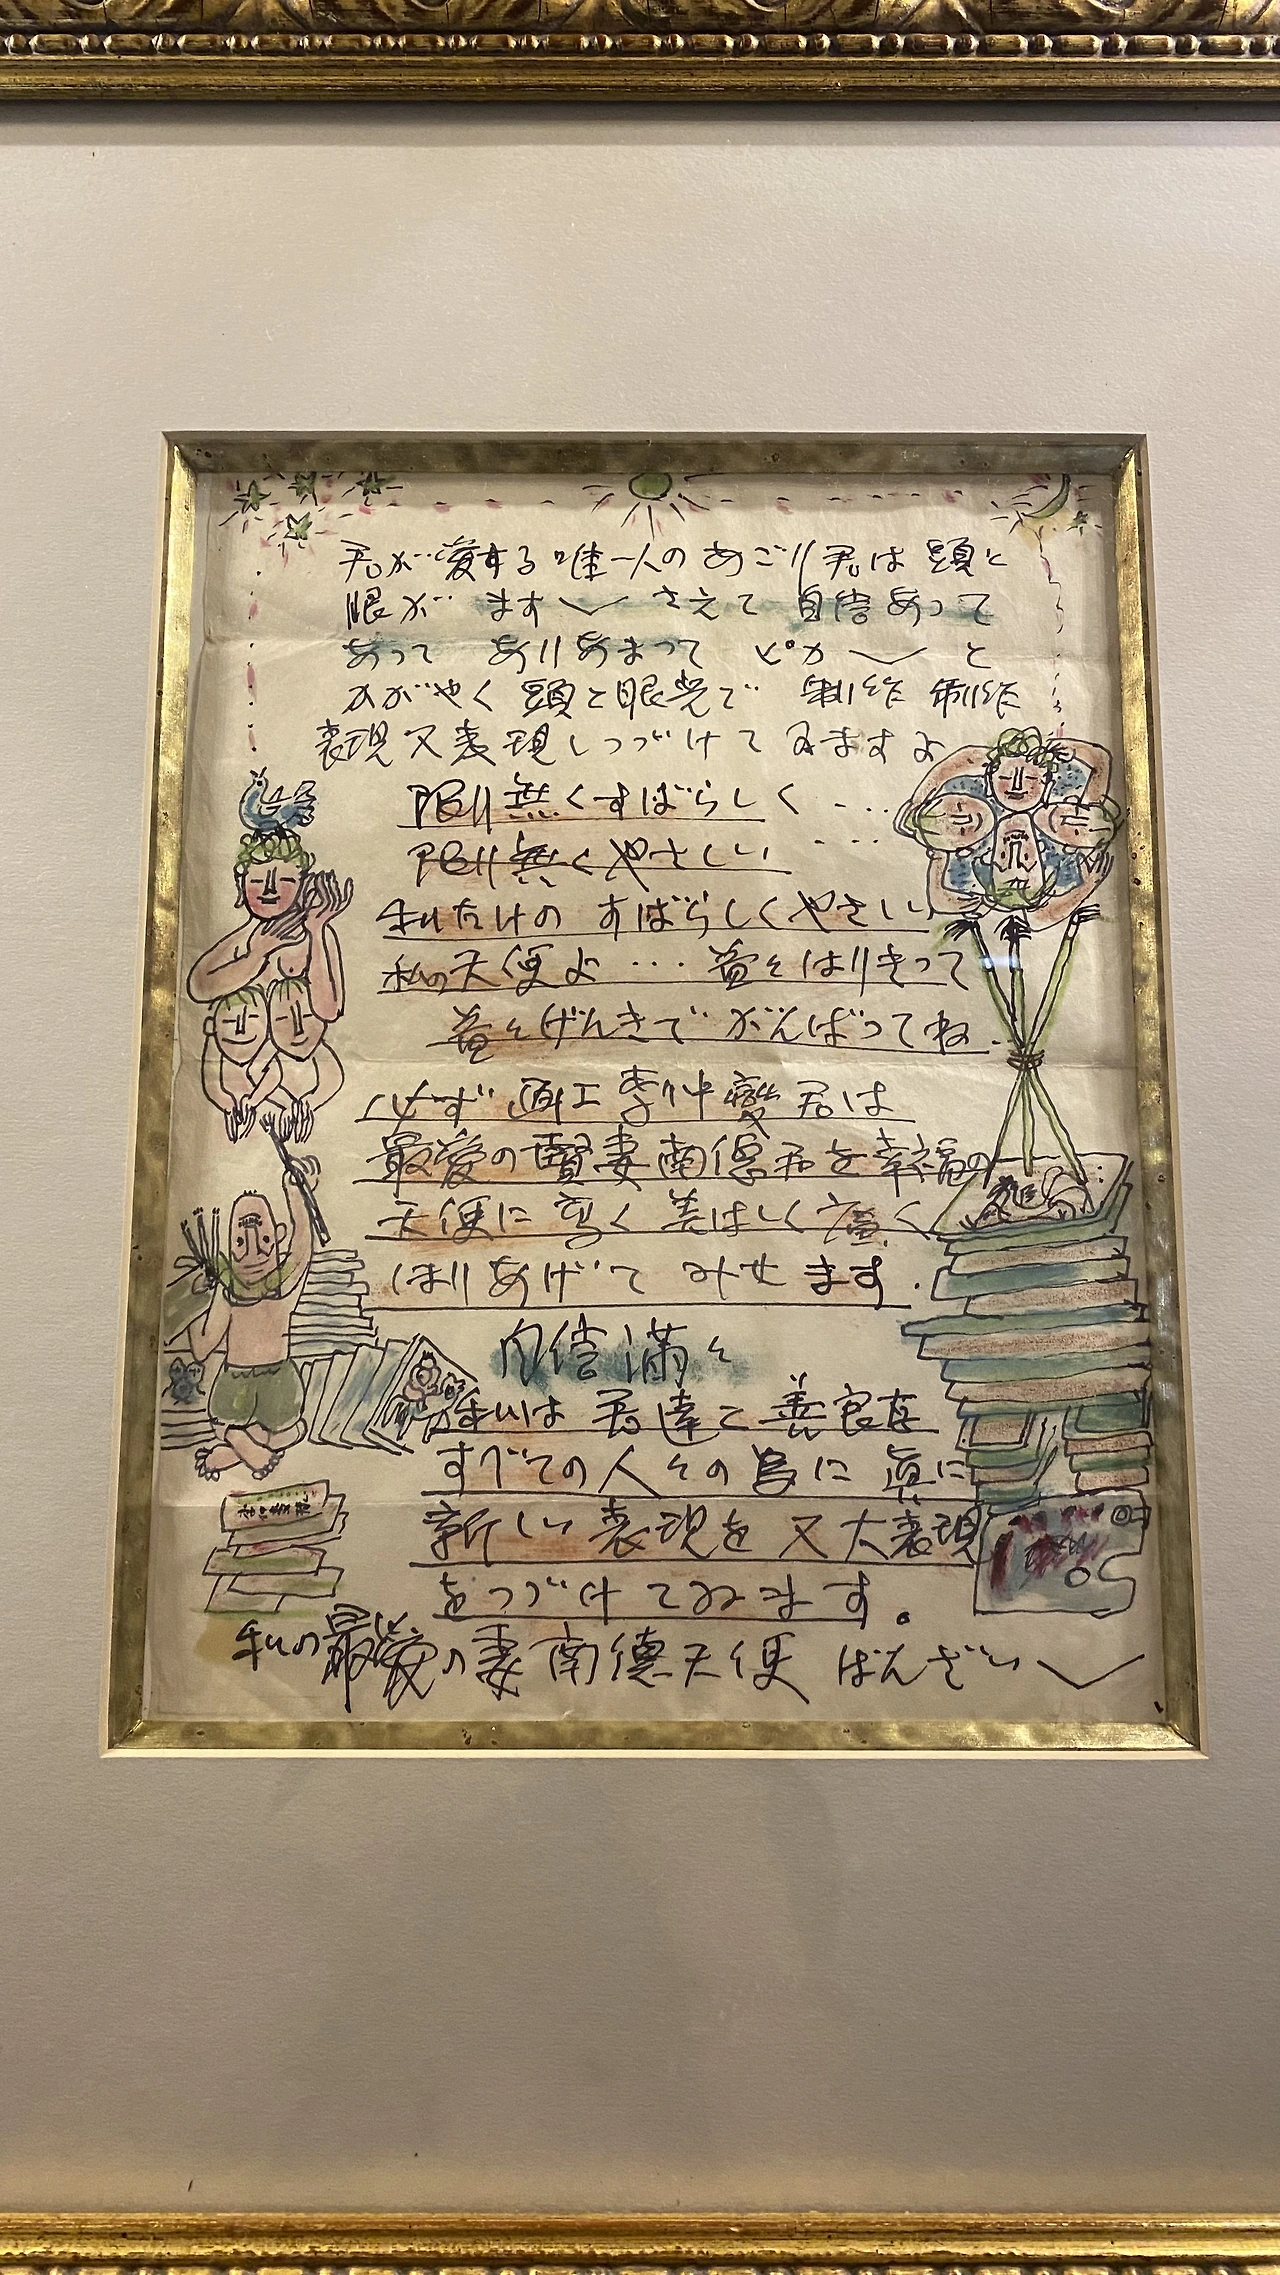 君が愛する唯一人のあごリ君は頭と
眼が ます〱 さえて 自信あって
あって ありあまって ピカ〱 と
かがやく 頭と眼光で 制作 制作
表現 又 表現しつづけてみますよ
限り無くすばらしく ・・・
限り無くやさしい ・・・
私だけの すばらしくやさしい
私の天使よ ・・・ 益々はりきって
益々げんきで がんばってね.
必ず 画工 李仲燮 君は
最愛の賢妻南徳君を幸福の
天使に 高く 美はしく 廣く
ほりあげて みせ ます.
自信満々
私は 君達と 善良な
すべての人々の為に 真に
新しい 表現を 又 大表現
をつづけてみます。
私の最愛の妻南徳天使 ばんざい〱